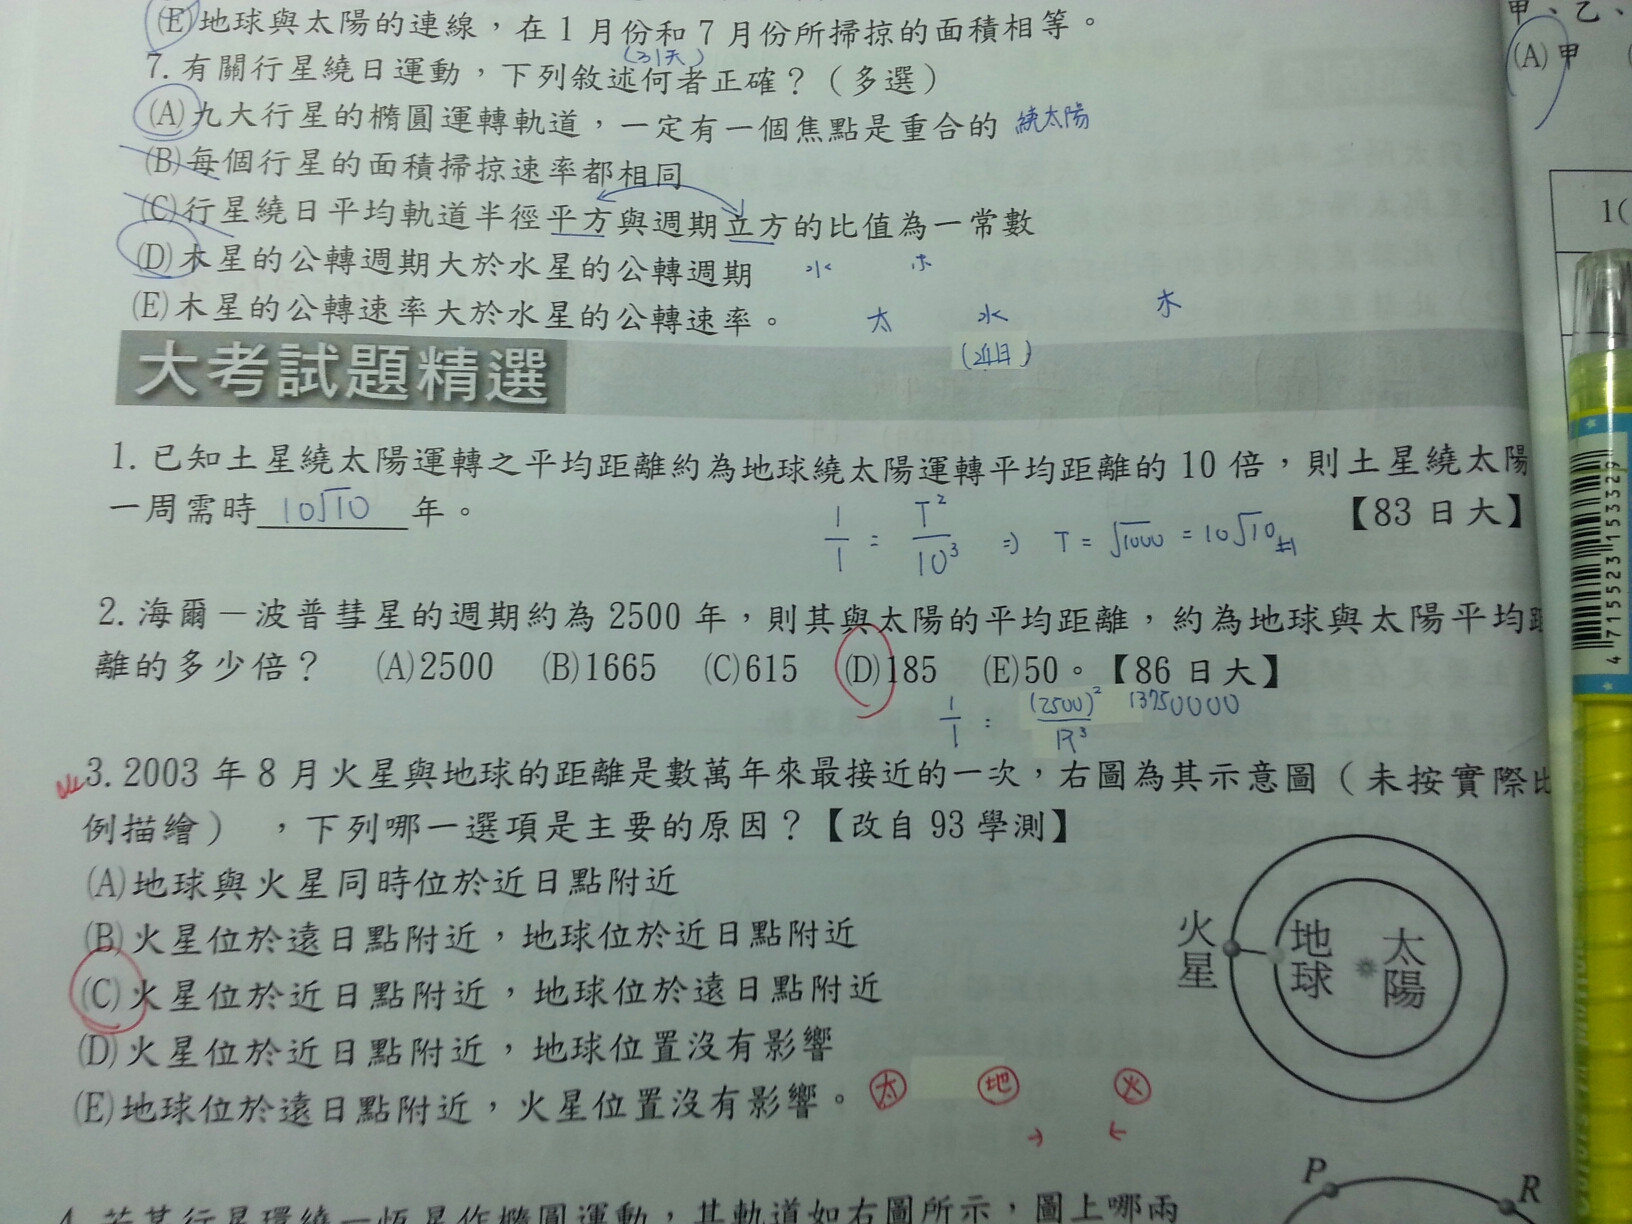 (E)地球與太陽的連線，在1月份和7月份所掃掠的面積相等。
(31天)
7. 有關行星繞日運動，下列敘述何者正確？（多選）
(A)九大行星的橢圓運轉軌道，一定有一個焦點是重合的 繞太陽
(B)每個行星的面積掃掠速率都相同
(C)行星繞日平均軌道半徑平方與週期立方的比值為一常數
(D)木星的公轉週期大於水星的公轉週期 水 木
(E)木星的公轉速率大於水星的公轉速率。 太 水 木
(近日)
大考試題精選
1. 已知土星繞太陽運轉之平均距離約為地球繞太陽運轉平均距離的10倍，則土星繞太陽
一周需時 10√10 年。 【83日大】
1/1 = T²/10³ ⇒ T = √1000 = 10√10 #
2. 海爾－波普彗星的週期約為2500年，則其與太陽的平均距離，約為地球與太陽平均距
離的多少倍？ (A)2500 (B)1665 (C)615 (D)185 (E)50。【86日大】
1/1 = (2500)²/R³ 13750000
3. 2003年8月火星與地球的距離是數萬年來最接近的一次，右圖為其示意圖（未按實際比
例描繪），下列哪一選項是主要的原因？【改自93學測】
(A)地球與火星同時位於近日點附近
(B)火星位於遠日點附近，地球位於近日點附近
(C)火星位於近日點附近，地球位於遠日點附近
(D)火星位於近日點附近，地球位置沒有影響
(E)地球位於遠日點附近，火星位置沒有影響。 太 地 火
→ ←
火星 地球 太陽
4. 若某行星環繞一恆星作橢圓運動，其軌道如右圖所示，圖上哪兩
P R
甲、乙、
(A)甲
1(
4 715523 153329